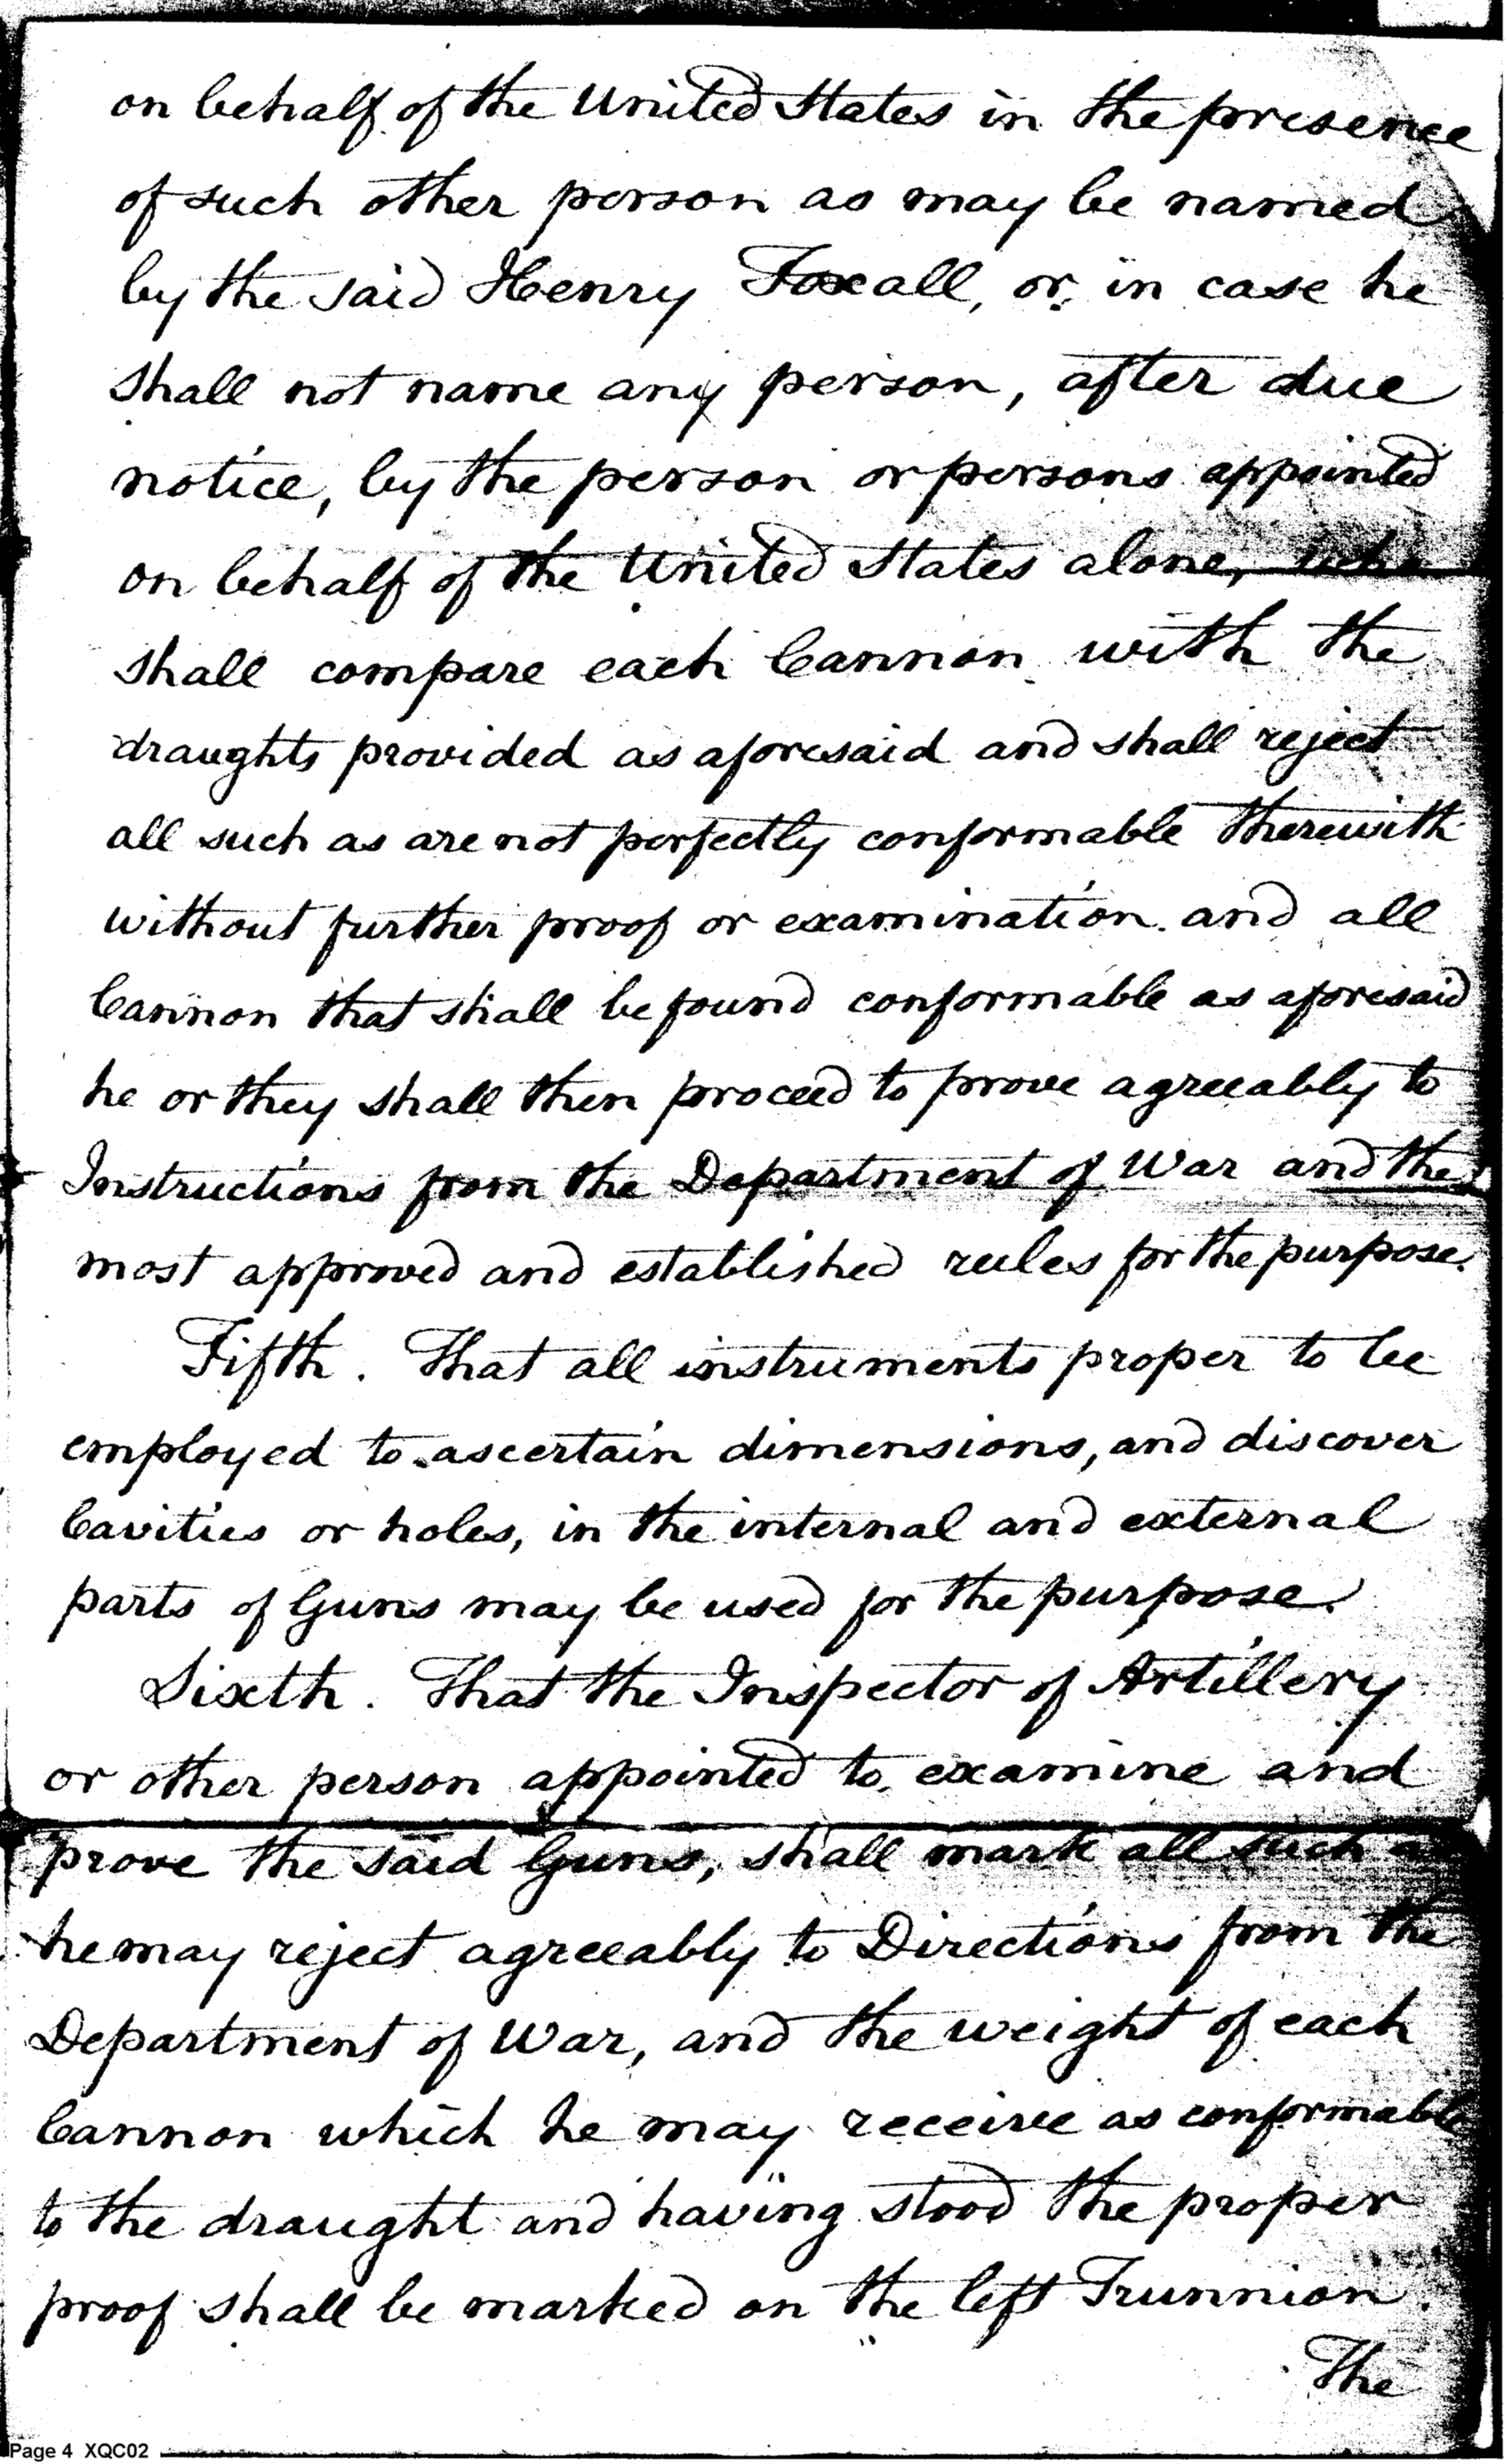 on behalf of the United States in the presence
of such other person as may be named
by the said Henry Foxall, or, in case he
shall not name any person, after due
notice, by the person or persons appointed
on behalf of the United States alone, who
shall compare each Cannon with the
draughts provided as aforesaid and shall reject
all such as are not perfectly conformable therewith
without further proof or examination. and all
Cannon that shall be found conformable as aforesaid
he or they shall then proceed to prove agreeably to
Instructions from the Department of War and the
most approved and established rules for the purpose.
Fifth. That all instruments proper to be
employed to ascertain dimensions, and discover
Cavities or holes, in the internal and external
parts of Guns may be used for the purpose.
Sixth. That the Inspector of Artillery
or other person appointed to examine and
prove the said Guns, shall mark all such as
he may reject agreeably to Directions from the
Department of War, and the weight of each
Cannon which he may receive as conformable
to the draught and having stood the proper
proof shall be marked on the left Trunnion.
The
Page 4 XQC02